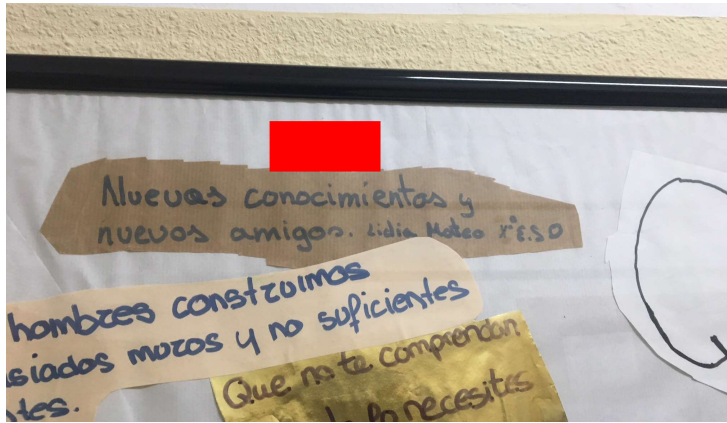 Nuevos conocimientos y
nuevos amigos. Lidia Mateo 1º E.S.O
hombres construimos
siados muros y no suficientes
ntes.
Que no te comprendan
lo necesites